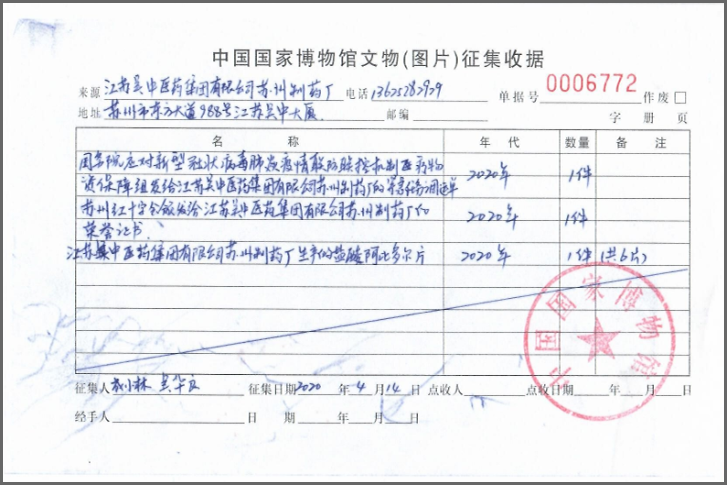 中国国家博物馆文物(图片)征集收据
来源 江苏吴中医药集团有限公司苏州制药厂 电话 13625282929 单据号 0006772 作废 □
地址 苏州市东方大道988号江苏吴中大厦 邮编 字 册 页
名 称 年 代 数量 备 注
国务院应对新型冠状病毒肺炎疫情联防联控机制医疗物 2020年 1件
资保障组发给江苏吴中医药集团有限公司苏州制药厂的 调运单
苏州红十字会颁发给江苏吴中医药集团有限公司苏州制药厂的 2020年 1件
荣誉证书
江苏吴中医药集团有限公司苏州制药厂生产的盐酸阿比多尔片 2020年 1件 (共6片)
征集人 征集日期 2020 年 4 月 14 日 点收人 点收日期 年 月 日
经手人 日 期 年 月 日
中国国家博物馆